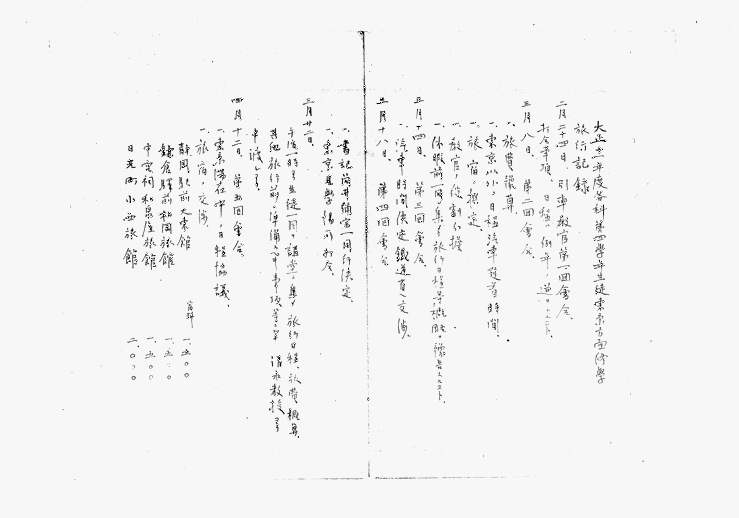 大正十一年度各科第四学年生徒東京方面修学
旅行記録
二月二十四日、引率教官第一回会合
打合事項、日程ハ例年ノ通リトスルコト
三月八日、第二回会合
一、旅費予算
一、東京以外ノ日程汽車発着時間、
一、旅宿ノ撰定
一、教官ノ役割分担
一、休暇前一同ヲ集メ旅行日程等ノ概略ヲ予告スルコト、
三月十四日、第三回会合、
一、汽車時間決定鉄道省ヘ交渉、
三月十八日、第四回会合
一、書記 補宮一同行決定、
一、東京見学場所打合、
三月廿二日、
午后一時ヨリ生徒一同ヲ講堂ニ集メ旅行日程、旅費概算
其他旅行前ニ準備スベキ事項等ニ就キ清水教授ヨリ
申渡シヲ
四月十二日、第五回会合、
一、東京滞在中ノ日程協議、
一、旅宿ノ交渉、
静岡駅前大東館 宿料 一、五〇〇
鎌倉駅前松岡旅館 一、五〇〇
中宮祠和泉屋旅館 一、五〇〇
日光町小西旅館 二、〇〇〇